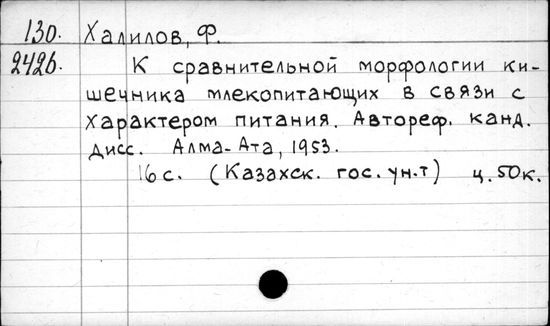 130. Халилов, Ф.
2426. К сравнительной морфологии ки-
шечника млекопитающих в связи с
характером питания. Автореф. канд.
дисс. Алма-Ата, 1953.
16 с. (Казахск. гос. ун.т) ц. 50 к.